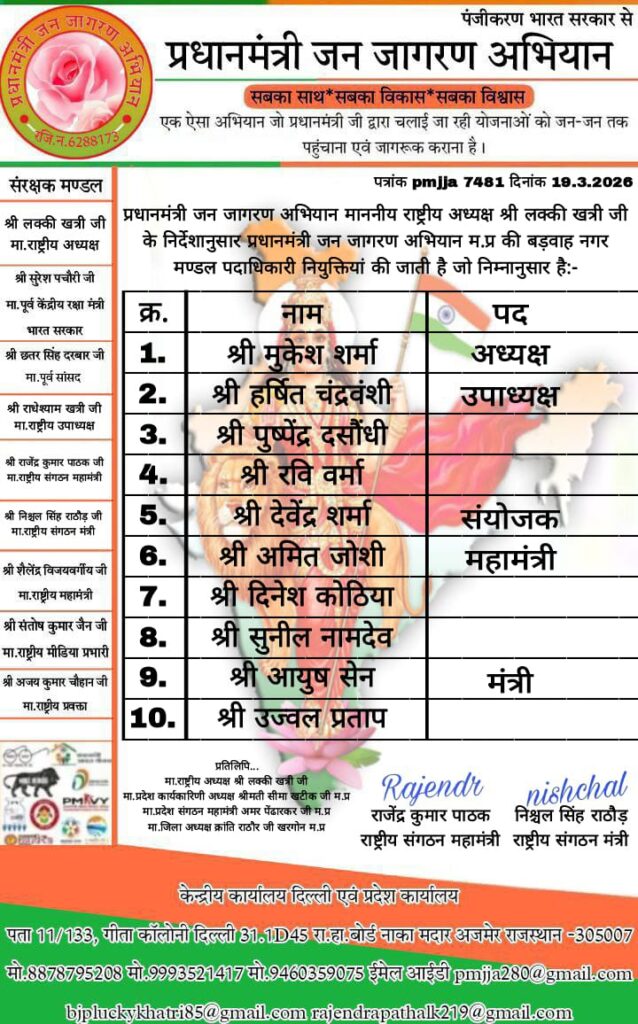 पंजीकरण भारत सरकार से
प्रधानमंत्री जन जागरण अभियान
सबका साथ*सबका विकास*सबका विश्वास
एक ऐसा अभियान जो प्रधानमंत्री जी द्वारा चलाई जा रही योजनाओं को जन-जन तक
पहुंचाना एवं जागरूक कराना है।
प्रधानमंत्री जन जागरण अभियान
रजि.न.6288173
संरक्षक मण्डल
श्री लक्की खत्री जी
मा.राष्ट्रीय अध्यक्ष
श्री सुरेश पचौरी जी
मा.पूर्व केंद्रीय रक्षा मंत्री
भारत सरकार
श्री छतर सिंह दरबार जी
मा.पूर्व सांसद
श्री राधेश्याम खत्री जी
मा.राष्ट्रीय उपाध्यक्ष
श्री राजेंद्र कुमार पाठक जी
मा.राष्ट्रीय संगठन महामंत्री
श्री निश्चल सिंह राठौड़ जी
मा.राष्ट्रीय संगठन मंत्री
श्री शैलेंद्र विजयवर्गीय जी
मा.राष्ट्रीय महामंत्री
श्री संतोष कुमार जैन जी
मा.राष्ट्रीय मीडिया प्रभारी
श्री अजय कुमार चौहान जी
मा.राष्ट्रीय प्रवक्ता
पत्रांक pmjja 7481 दिनांक 19.3.2026
प्रधानमंत्री जन जागरण अभियान माननीय राष्ट्रीय अध्यक्ष श्री लक्की खत्री जी
के निर्देशानुसार प्रधानमंत्री जन जागरण अभियान म.प्र की बड़वाह नगर
मण्डल पदाधिकारी नियुक्तियां की जाती है जो निम्नानुसार है:-
क्र. नाम पद
1. श्री मुकेश शर्मा अध्यक्ष
2. श्री हर्षित चंद्रवंशी उपाध्यक्ष
3. श्री पुष्पेंद्र दसौंधी
4. श्री रवि वर्मा
5. श्री देवेंद्र शर्मा संयोजक
6. श्री अमित जोशी महामंत्री
7. श्री दिनेश कोठिया
8. श्री सुनील नामदेव
9. श्री आयुष सेन मंत्री
10. श्री उज्वल प्रताप
प्रतिलिपि...
मा.राष्ट्रीय अध्यक्ष श्री लक्की खत्री जी
मा.प्रदेश कार्यकारिणी अध्यक्ष श्रीमती सीमा खटीक जी म.प्र
मा.प्रदेश संगठन महामंत्री अमर पेंढारकर जी म.प्र
मा.जिला अध्यक्ष क्रांति राठौर जी खरगोन म.प्र
Rajendr
राजेंद्र कुमार पाठक
राष्ट्रीय संगठन महामंत्री
nishchal
निश्चल सिंह राठौड़
राष्ट्रीय संगठन मंत्री
केन्द्रीय कार्यालय दिल्ली एवं प्रदेश कार्यालय
पता 11/133, गीता कॉलोनी दिल्ली 31.1D45 रा.हा.बोर्ड नाका मदार अजमेर राजस्थान -305007
मो.8878795208 मो.9993521417 मो.9460359075 ईमेल आईडी pmjja280@gmail.com
bjpluckykhatri85@gmail.com rajendrapathalk219@gmail.com